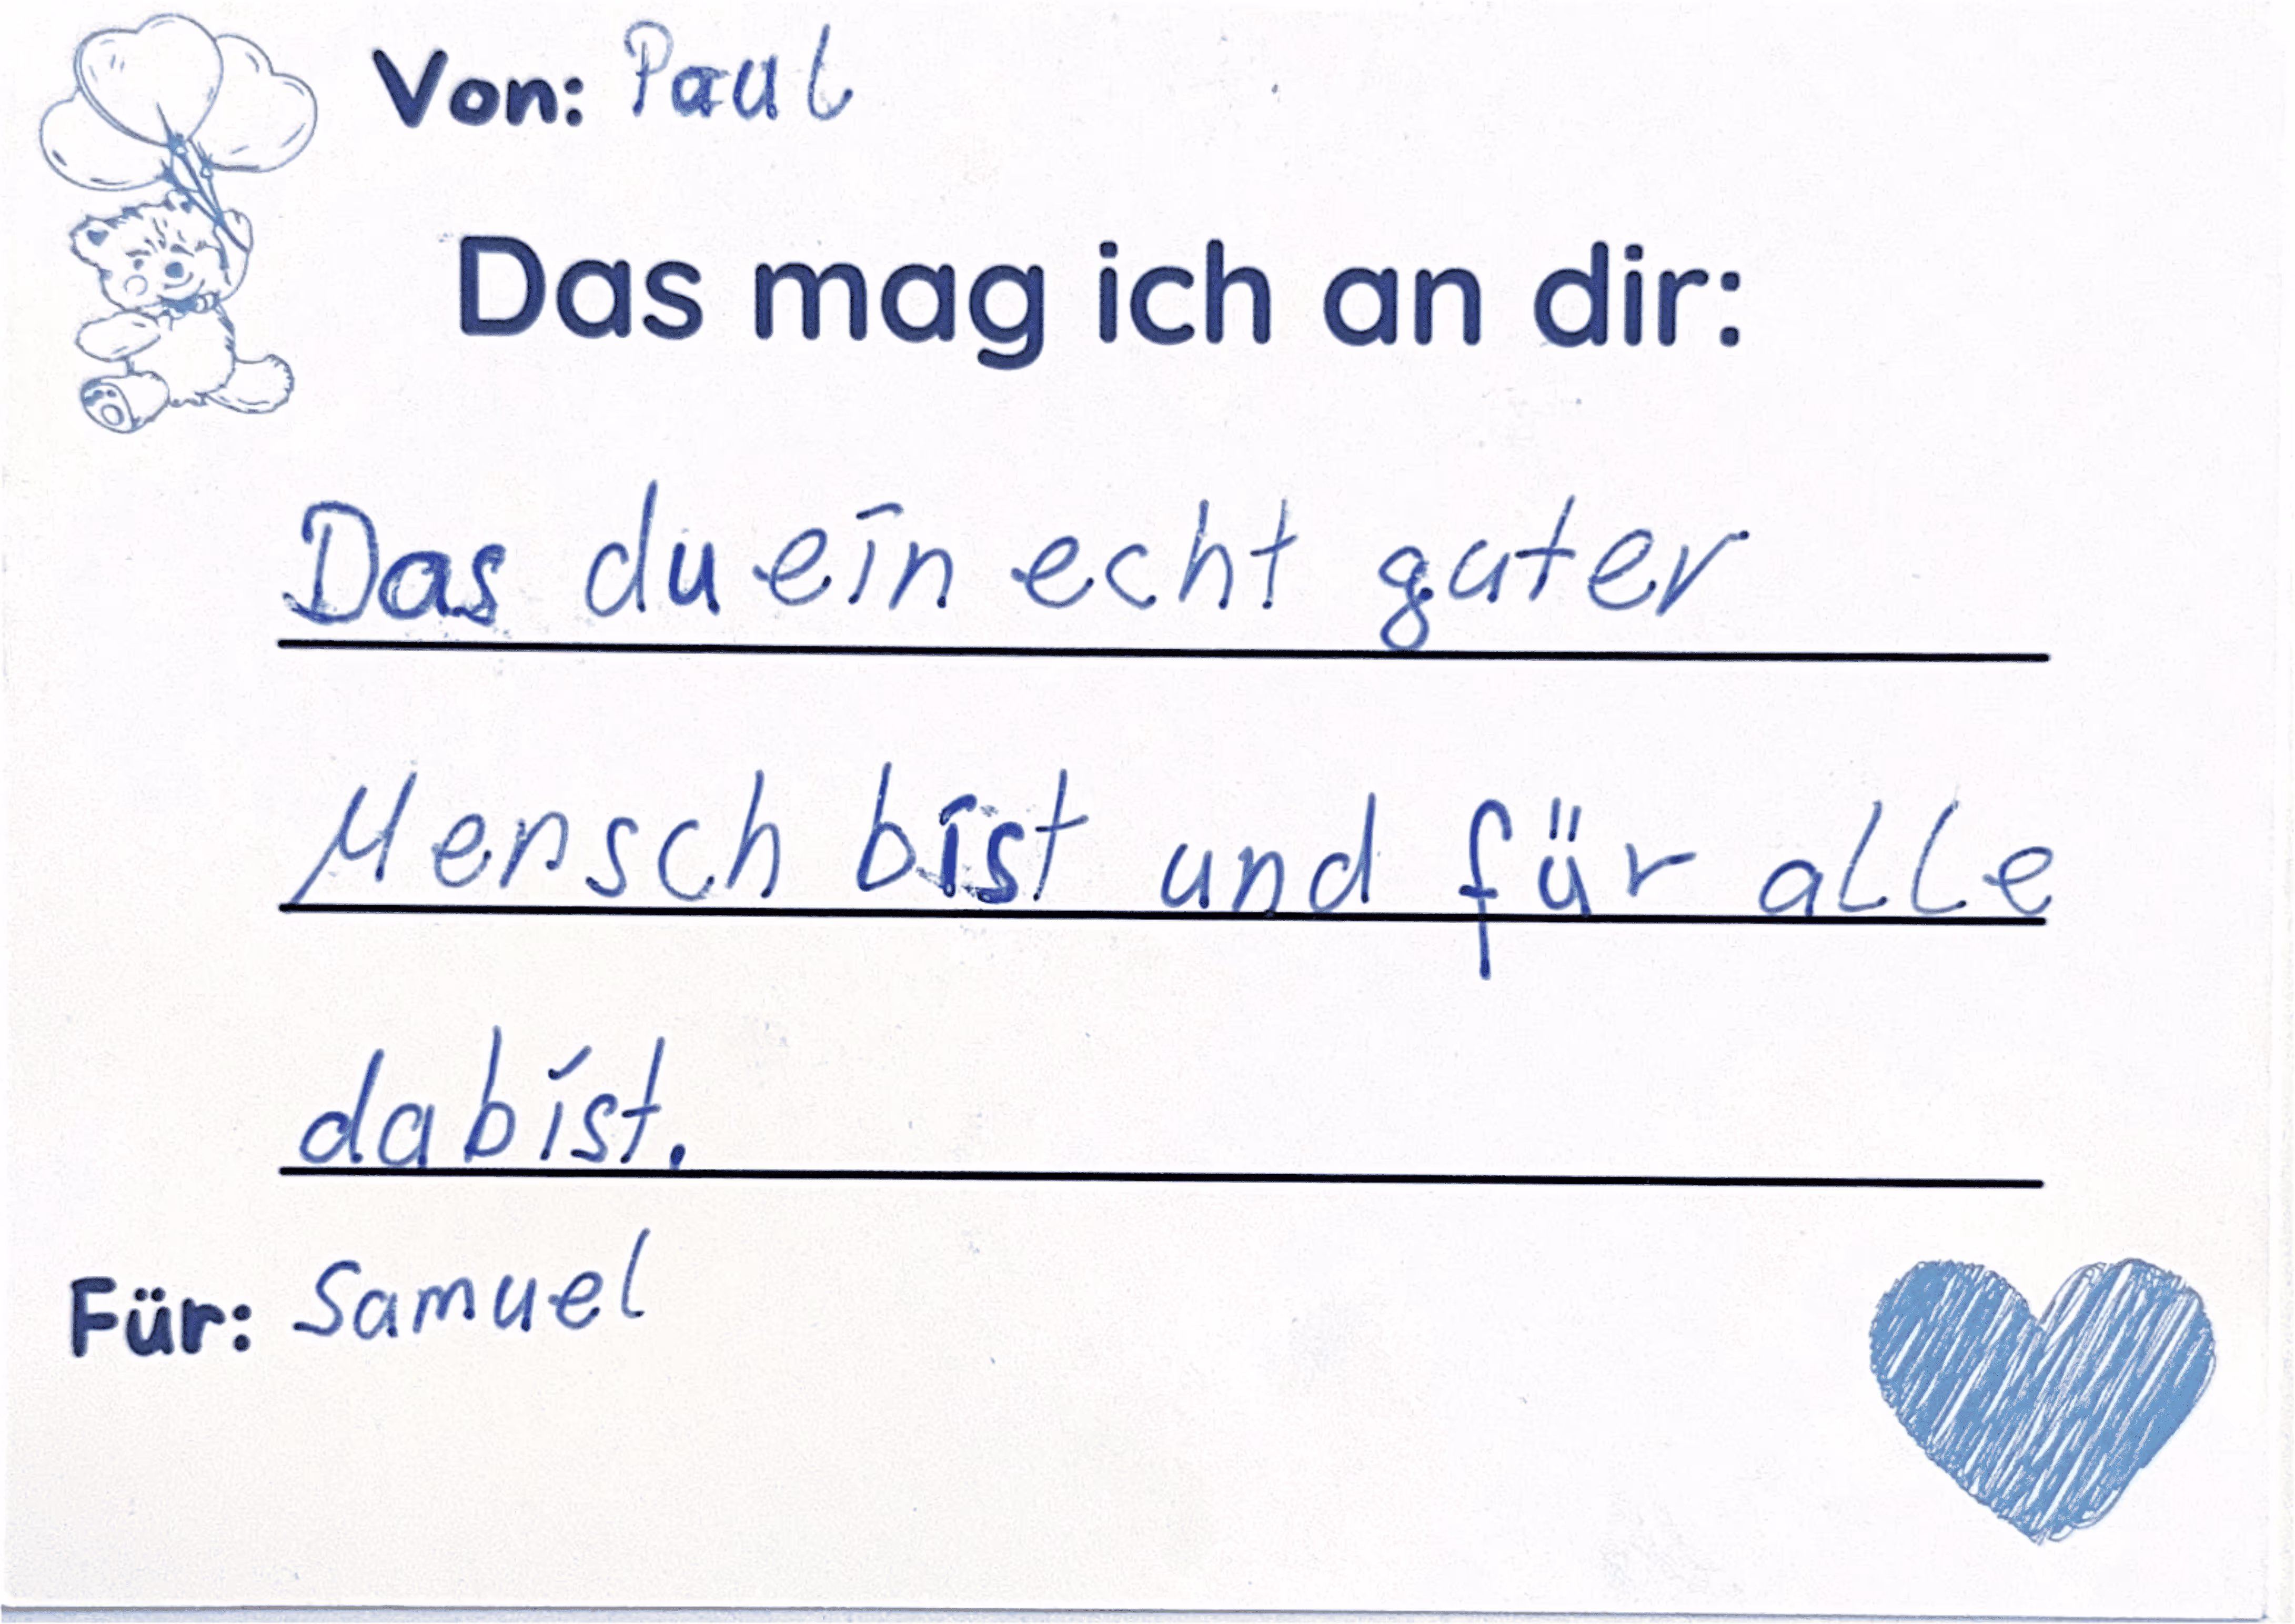 Von: Paul
Das mag ich an dir:
Das du ein echt guter
Mensch bist und für alle
da bist.
Für: Samuel